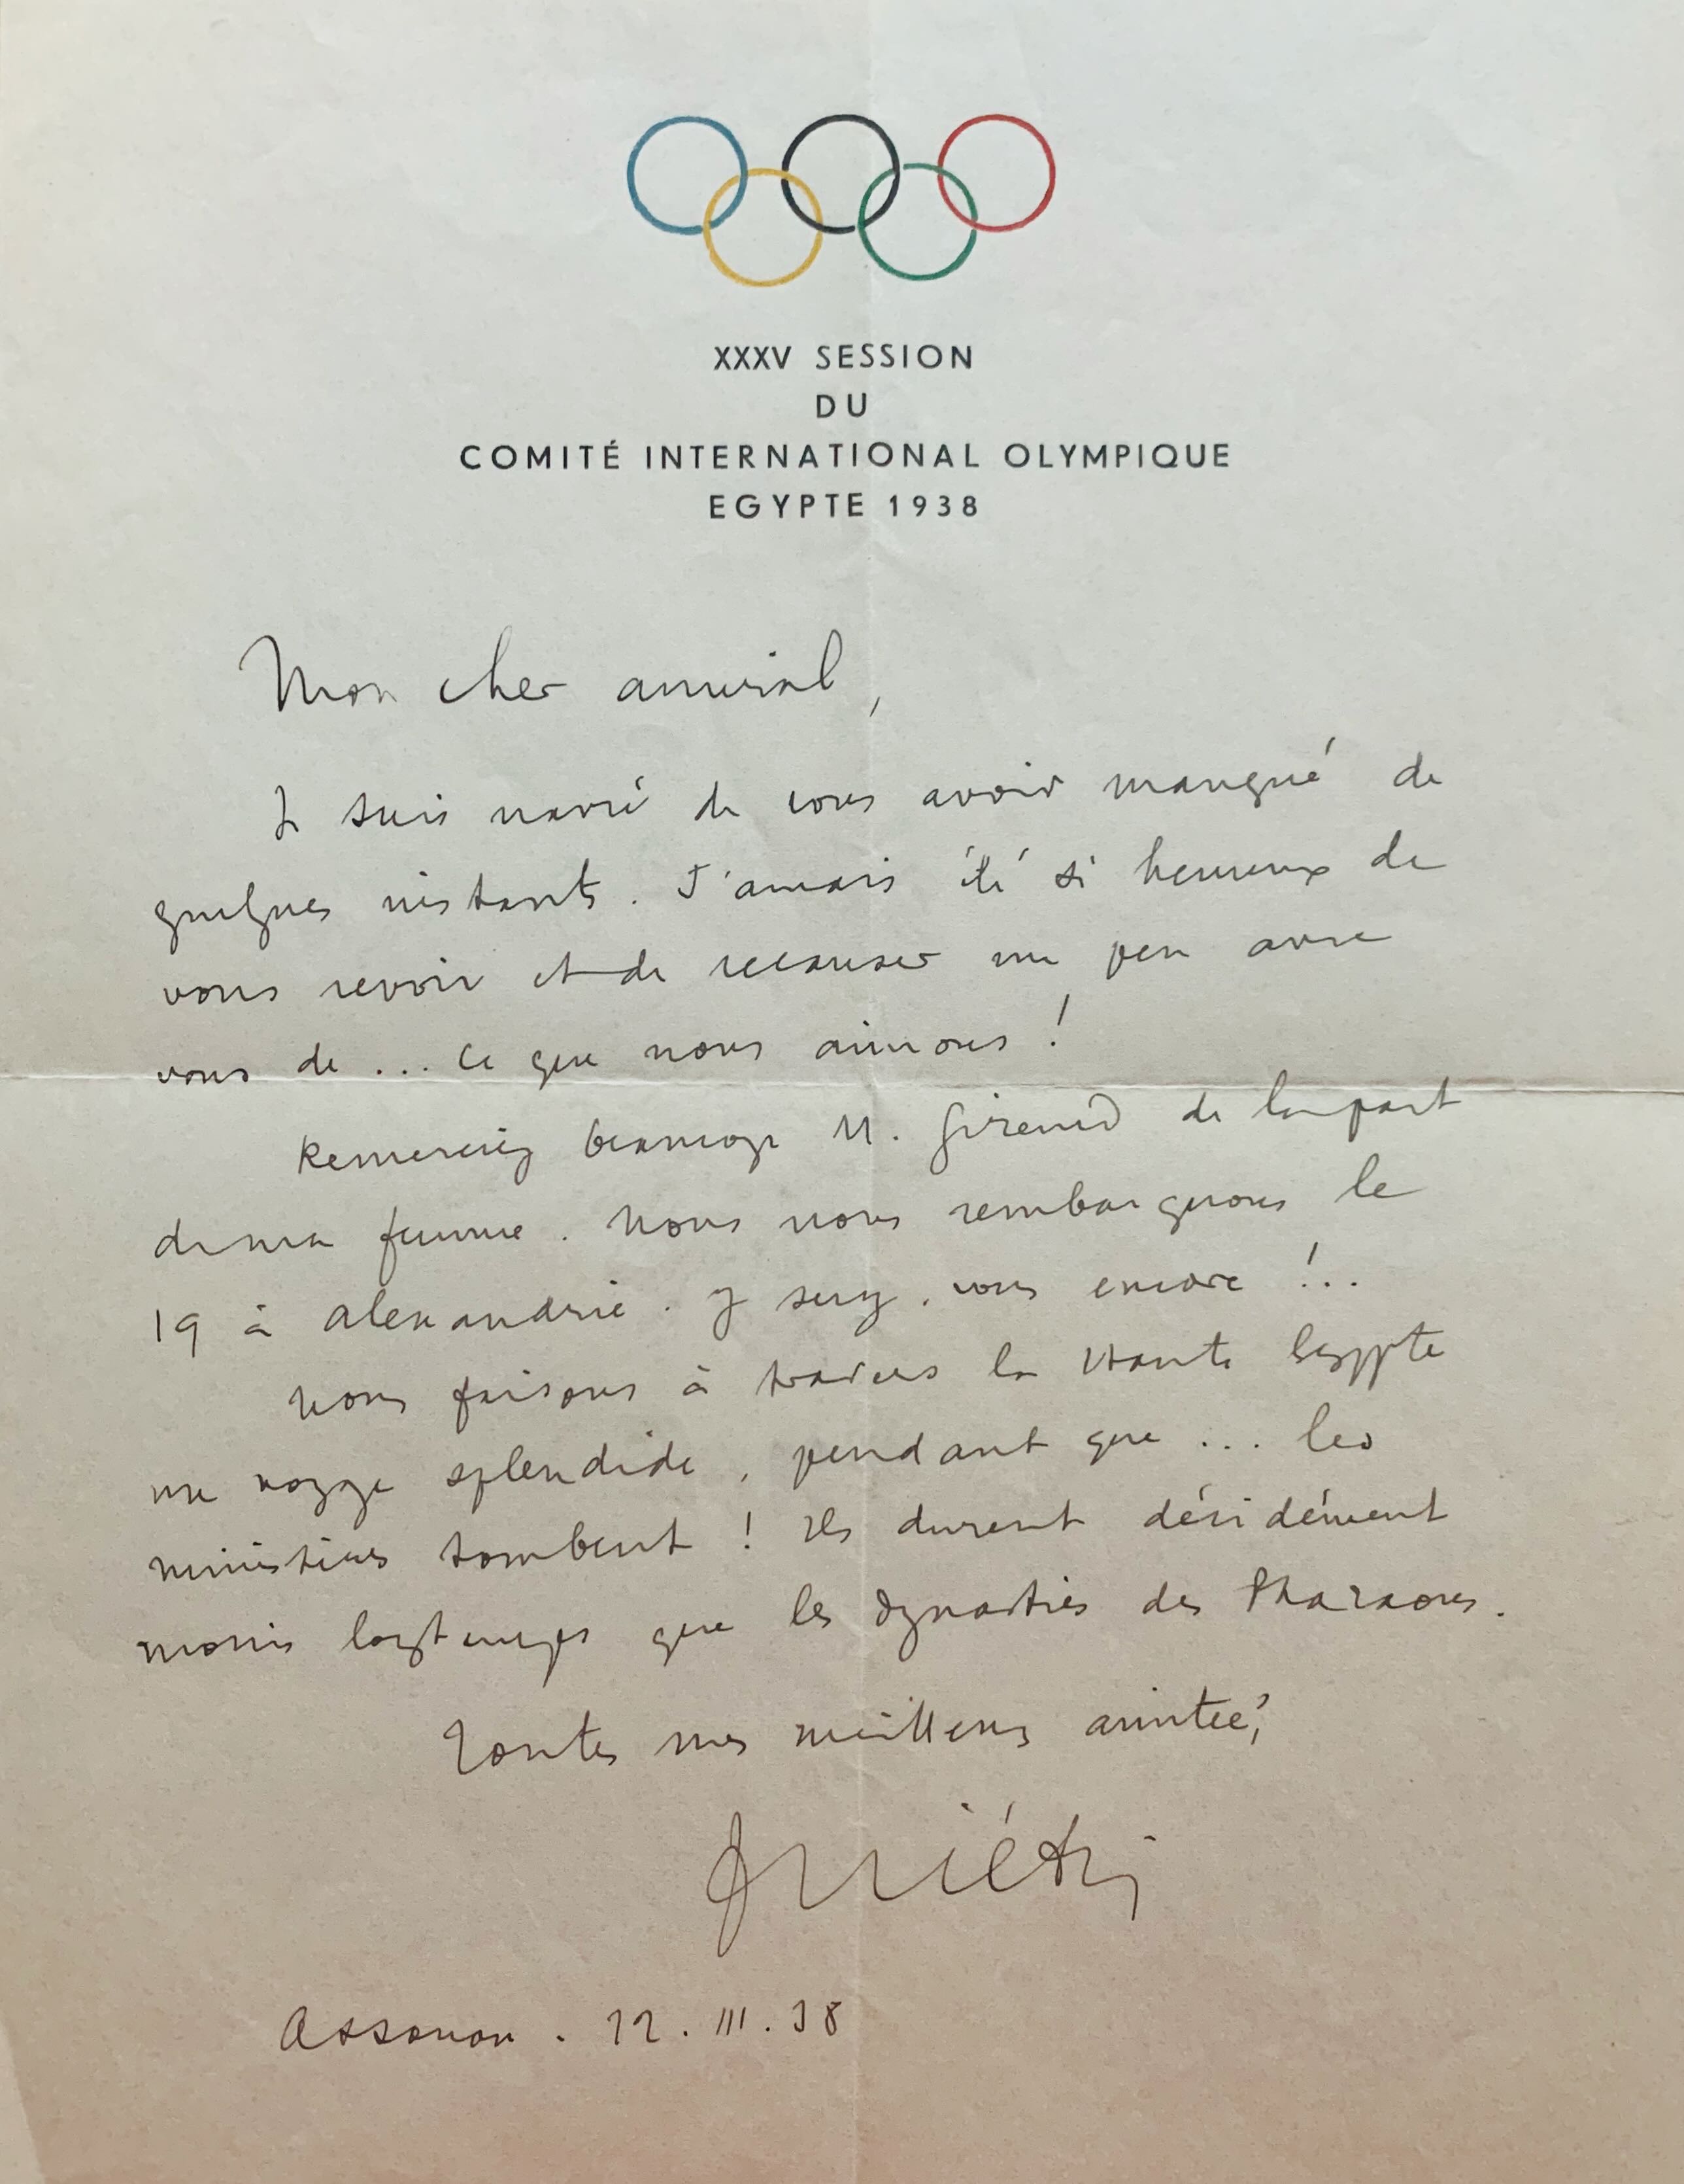 XXXV SESSION
DU
COMITÉ INTERNATIONAL OLYMPIQUE
EGYPTE 1938
Mon cher amiral,
Je suis navré de vous avoir manqué de
quelques instants. J'aurais été si heureux de
vous revoir et de recauser un peu avec
vous de ... ce que nous aimons !
Remerciez beaucoup M. de la part
de ma femme. Nous nous rembarquons le
19 à Alexandrie. Y serez-vous encore !..
Nous faisons à travers la Haute Egypte
un voyage splendide, pendant que ... les
ministères tombent ! Ils durent décidément
moins longtemps que les dynasties des Pharaons.
Toutes mes meilleures amitiés,
Piétri
Assouan. 12.III.38